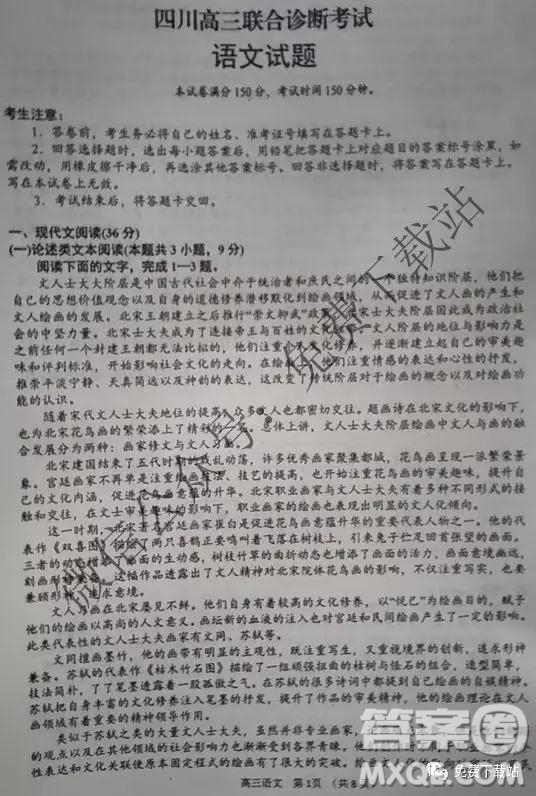 四川高三联合诊断考试
语文试题
本试卷满分150分，考试时间150分钟。
考生注意：
1．答卷前，考生务必将自己的姓名、准考证号填写在答题卡上。
2．回答选择题时，选出每小题答案后，用铅笔把答题卡上对应题目的答案标号涂黑，如
需改动，用橡皮擦干净后，再选涂其他答案标号。回答非选择题时，将答案写在答题卡上。
写在本试卷上无效。
3．考试结束后，将答题卡交回。
一、现代文阅读(36分)
(一)论述类文本阅读(本题共3小题，9分)
阅读下面的文字，完成1—3题。
文人士大夫阶层是中国古代社会中介于统治者和庶民之间的一个独特知识阶层，他们把
自己的思想价值观念以及自身的道德修养潜移默化到绘画领域，从而促进了文人画的产生和
文人绘画的发展。北宋王朝建立之后推行“崇文抑武”政策，士大夫阶层因此成为政治社
会的中坚力量。北宋士大夫成为了连接帝王与百姓的文化，文人阶层的地位与影响力是
之前任何一个封建王朝都无法比拟的，他们注重文化修养，并逐渐建立起自己的审美趣
味和评判标准，开始影响社会文化的走向。在绘画，他们注重情感的表达和心性的抒发，
推崇平淡宁静、天真简远以及神韵的表达，这改变了传统阶层对于绘画的概念以及对绘画功
能的认识。
随着宋代文人士大夫地位的提高，文人也都密切交往。题画诗在北宋文化的影响下，
也为北宋花鸟画的繁荣添上了精彩的一笔。总体上讲，文人文化在绘画中文人与画的融
合发展分为两种：画家修文与文人习画。
北宋建国结束了五代时期的战乱动荡，许多优秀画家聚集都城，花鸟画呈现一派繁荣景
象。宫廷画家不再是单单注重绘画技法、技艺的提高，也开始注重花鸟画的审美趣味，提升自己
的文化内涵，促进花鸟画意蕴的升华。北宋职业画家与文人士大夫有着多种不同形式的接
触和交往，在文士审美趣味的影响下，职业画家的绘画也表现出明显的文人化倾向。
这一时期，北宋著名宫廷画家崔白是促进花鸟画意蕴升华的重要代表人物之一。他的代
表作《双喜图》描绘了两只喜鹊正要鸣叫着飞落在树枝上，引来兔子忙足回首张望的画面。
三者的动势增添了画面的生动感，树枝竹草的曲折动态也增添了画面的活力，画面意境悠远，
刻画形神兼备。这幅作品透露出了文人精神对北宋院体花鸟画的影响，不仅注重写实，也要
兼顾形神，追求意境。
文人习画在北宋屡见不鲜。他们自身有着较高的文化修养，以“悦己”为绘画目的，赋予
他们的绘画以高尚的人文意义。画坛新的血液的注入也对宫廷和民间绘画产生了一定的影响。
此类代表性的文人士大夫画家有文同、苏轼等。
文同擅画墨竹，他的画带有明显的主观性，既注重写生，又重视境界的创新，追求形神
兼备。苏轼的代表作《枯木竹石图》描绘了一组顽强扭曲的枯树与怪石的组合，造型简单，
技法简朴，了了笔墨透露着一股孤傲之气。在苏轼的很多诗词中都提到自己绘画的自娱精神。
苏轼把自身丰富的文化修养注入笔墨的抒发，提升了作品的审美精神，他的绘画理论在文人
画领域有着重要的精神领导作用。
类似于苏轼之类的大量文人士大夫，虽然并非专业画家，
的观点以及在其他领域的社会影响力也渐渐受到各界青睐。他们
和文化关联使原本固定程式的绘画有了很大的影响。绘画
高三语文 第1页 （共8页）
微信公众号：免费下载站
答案圈
MXQE.COM
免费下载站